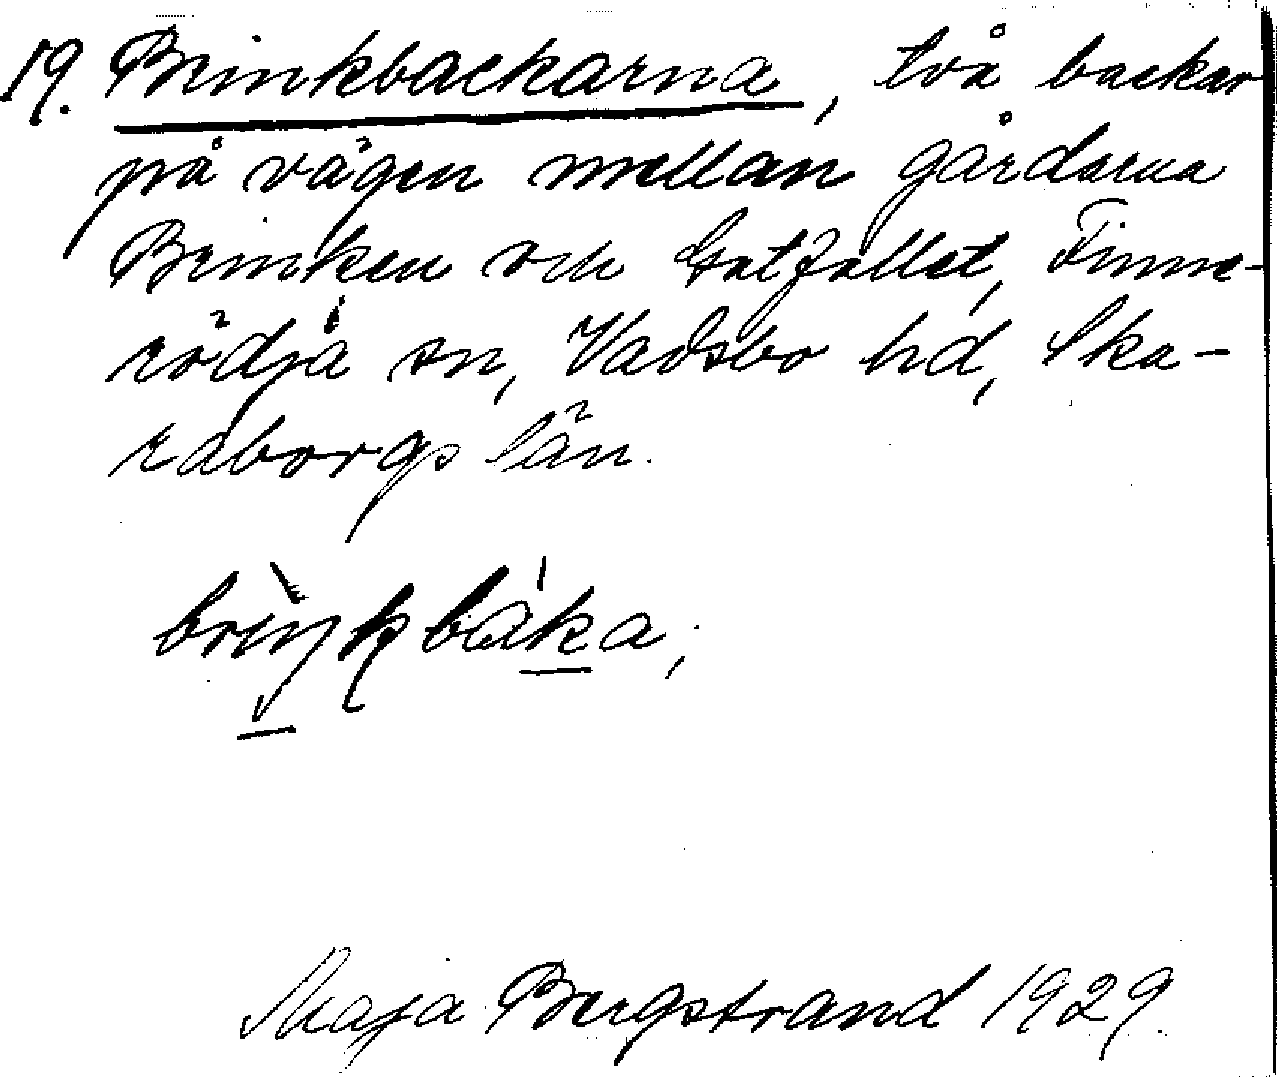 19. Brinkbackarna, två backar
på vägen mellan gårdarna
Brinken och Gatfallet, Finne-
rödja sn, Vadsbo hd, Ska-
raborgs län.
brìŋkbáka,
Maja Bergstrand 1929.